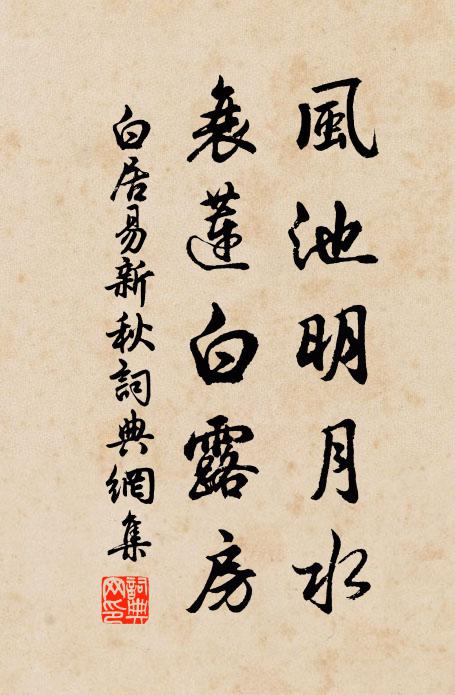 風池明月水
衰蓮白露房
白居易新秋詞典網集
詞典網印